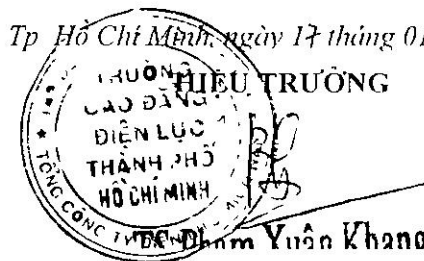 Tp. Hồ Chí Minh, ngày 17 tháng 01
HIỆU TRƯỞNG
TRƯỜNG
CAO ĐẲNG
ĐIỆN LỰC
THÀNH PHỐ
HỒ CHÍ MINH
TỔNG CÔNG TY
TS. Phạm Xuân Khang